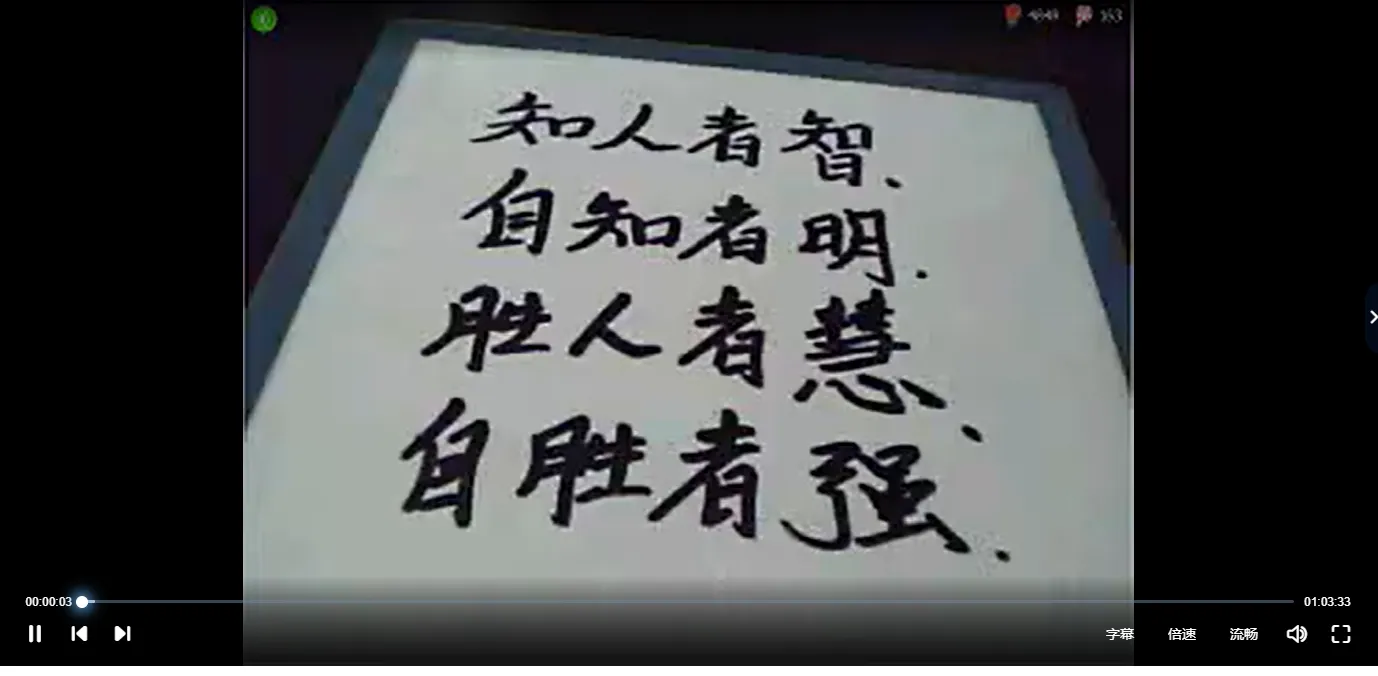 知人者智、
自知者明.
胜人者慧、
自胜者强、
00:00:03
01:03:33
字幕
倍速
流畅